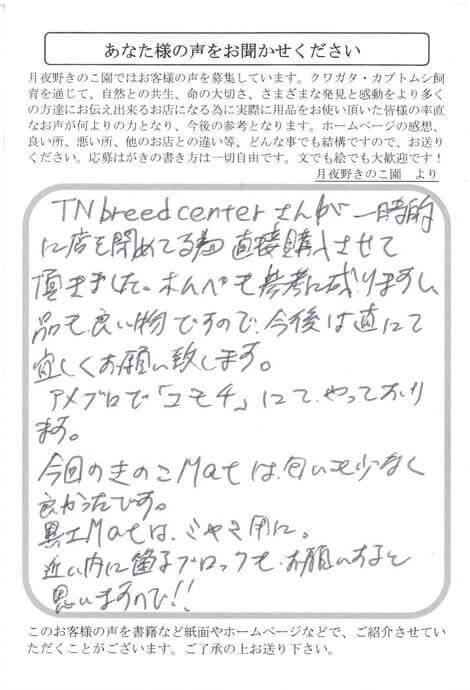 あなた様の声をお聞かせください
月夜野きのこ園ではお客様の声を募集しています。クワガタ・カブトムシ飼
育を通じて、自然との共生、命の大切さ、さまざまな発見と感動をより多く
の方達にお伝え出来るお店になる為に実際に用品をお使い頂いた皆様の率直
なお声が何よりの力となり、今後の参考となります。ホームページの感想、
良い所、悪い所、他のお店との違い等、どんな事でも結構ですので、お送り
ください。応募はがきの書き方は一切自由です。文でも絵でも大歓迎です！
月夜野きのこ園　より
TNbreedcenterさんが一時的
に店を閉めてる為直接購入させて
頂きました。ホムペも参考に成りますし、
品も良い物ですので、今後は直にて
宜しくお願い致します。
アメブロで「ユモチ」にて、やっており
ます。
今回のきのこMatは、匂いも少なく
良かったです。
黒土Matは、ミヤマ用に。
近い内に菌糸ブロックも、お願いすると
思いますので!!
このお客様の声を書籍など紙面やホームページなどで、ご紹介させてい
ただくことがございます。ご了承の上お送り下さい。